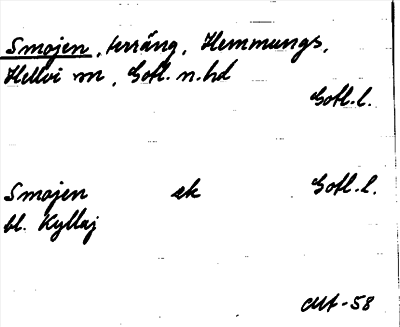 Smojen, terräng, Hemmungs,
Hellvi sn, Gotl. n. hd
Gotl. l.
Smojen ek Gotl. l.
bl. Kyllaj
-58